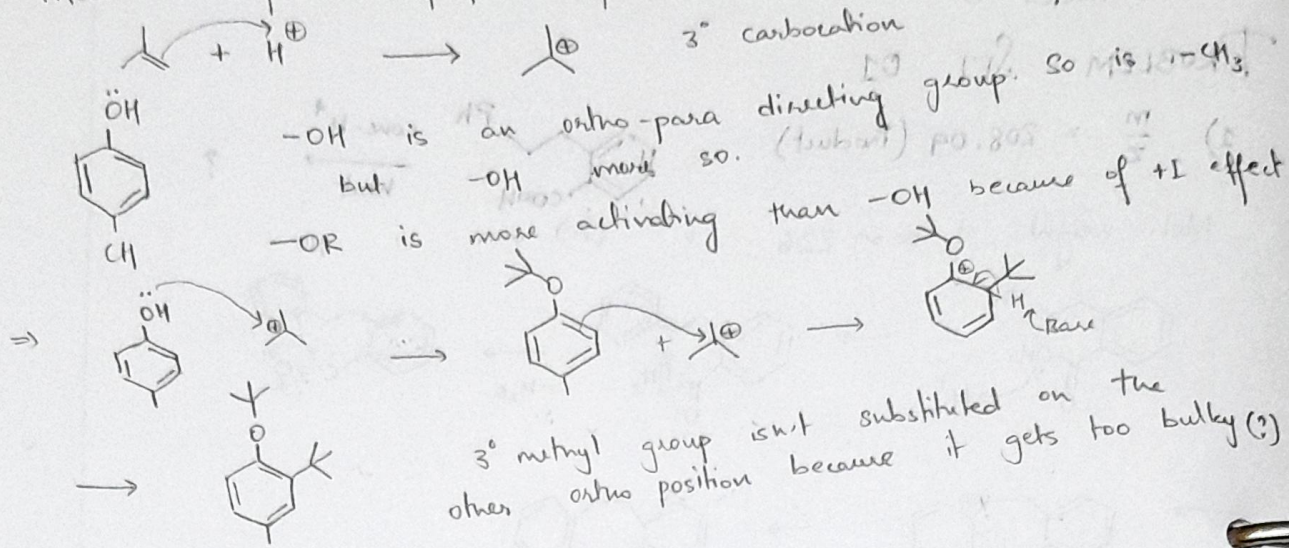 + H⊕ → ⊕ 3° carbocation
ÖH
-OH is an ortho-para directing group. So is -CH3,
but -OH more so.
CH
-OR is more activating than -OH because of +I effect
⇒ ÖH ⊕ → O + ⊕ → O ⊕ H Base
→ O
3° methyl group isn't substituted on the
other ortho position because it gets too bulky (?)